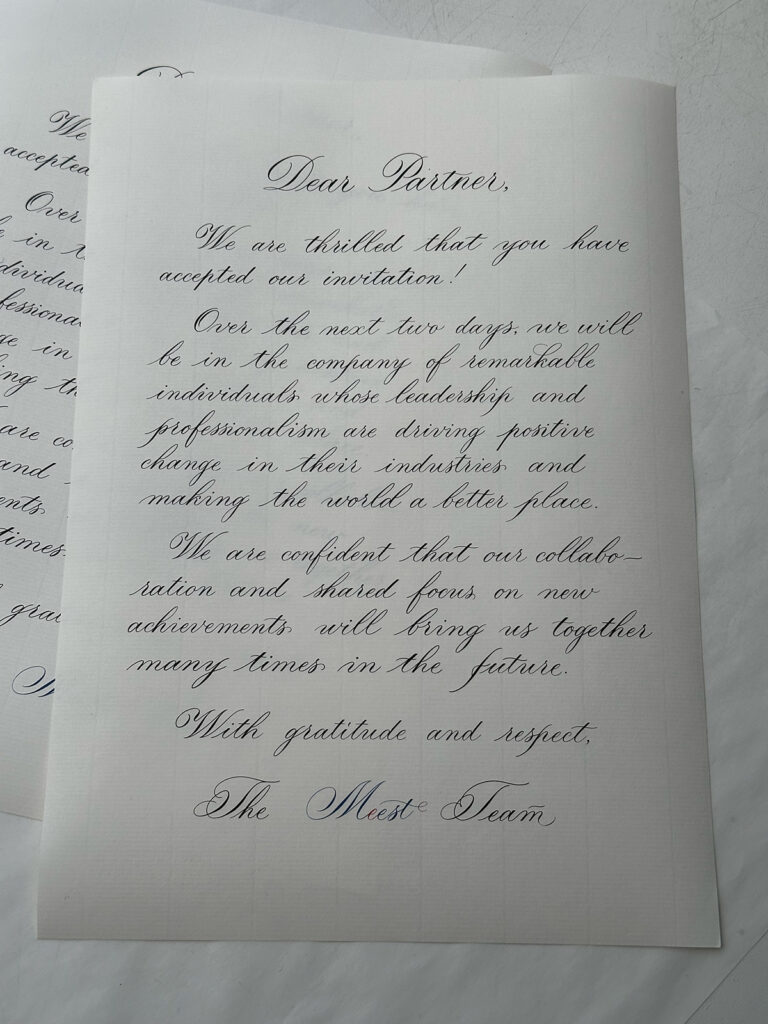 Dear Partner,
We are thrilled that you have
accepted our invitation!
Over the next two days, we will
be in the company of remarkable
individuals whose leadership and
professionalism are driving positive
change in their industries and
making the world a better place.
We are confident that our collabo–
ration and shared focus on new
achievements will bring us together
many times in the future.
With gratitude and respect,
The Meest Team
We
accepted
Over
in
are
and
times